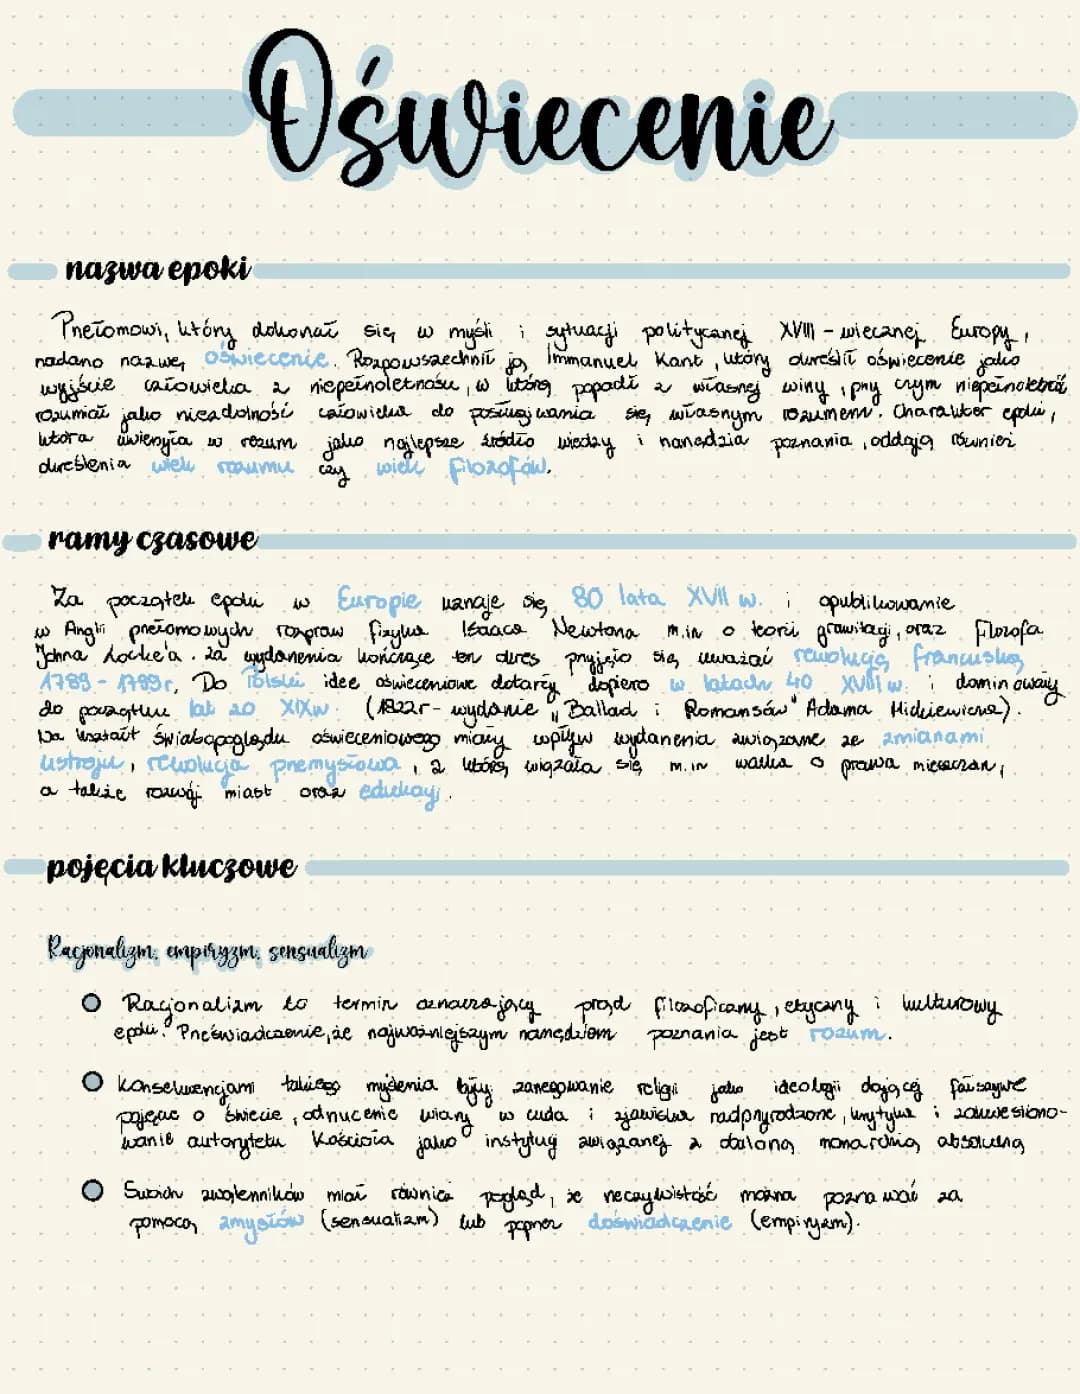 Oświecenie
nazwa epoki
Przełomowi, który dokonał się w myśli i sytuacji politycznej XVIII-wiecznej Europy,
nadano nazwę oświecenie. Rozpowszechnił ją Immanuel Kant, który określił oświecenie jako
wyjście człowieka z niepełnoletności, w którą popadł z własnej winy, przy czym niepełnoletność
rozumiał jako niezdolność człowieka do posługiwania się własnym rozumem. Charakter epoki,
która uwierzyła w rozum jako najlepsze źródło wiedzy i narzędzia poznania, oddają również
określenia wiek rozumu czy wiek filozofów.
ramy czasowe
Za początek epoki w Europie uznaje się 80 lata XVII w. i opublikowanie
w Anglii przełomowych rozpraw fizyka Isaaca Newtona m.in o teorii grawitacji, oraz filozofa
Johna Locke'a. Za wydarzenia kończące ten okres przyjęło się uważać rewolucję francuską
1789-1799r. Do Polski idee oświeceniowe dotarły dopiero w latach 40 XVIII w. i dominowały
do początku lat 20 XIXw. (1822r- wydanie "Ballad i Romansów" Adama Mickiewicza).
Na kształt światopoglądu oświeceniowego miały wpływ wydarzenia związane ze zmianami
ustroju, rewolucja przemysłowa, z którą wiązała się m.in walka o prawa mieszczan,
a także rozwój miast oraz edukacji.
pojęcia kluczowe
Racjonalizm, empiryzm, sensualizm
Racjonalizm to termin oznaczający prąd filozoficzny, etyczny i kulturowy
epoki. Przeświadczenie, że najważniejszym narzędziem poznania jest rozum.
Konsekwencjami takiego myślenia były: zanegowanie religii jako ideologii dającej fałszywe
pojęcie o świecie, odrzucenie wiary w cuda i zjawiska nadprzyrodzone, krytyka i zakwestiono-
wanie autorytetu Kościoła jako instytucji związanej z daloną monarchią absolutną
Swoich zwolenników miał również pogląd, że rzeczywistość można poznawać za
pomocą zmysłów (sensualizm) lub poprzez doświadczenie (empiryzm).